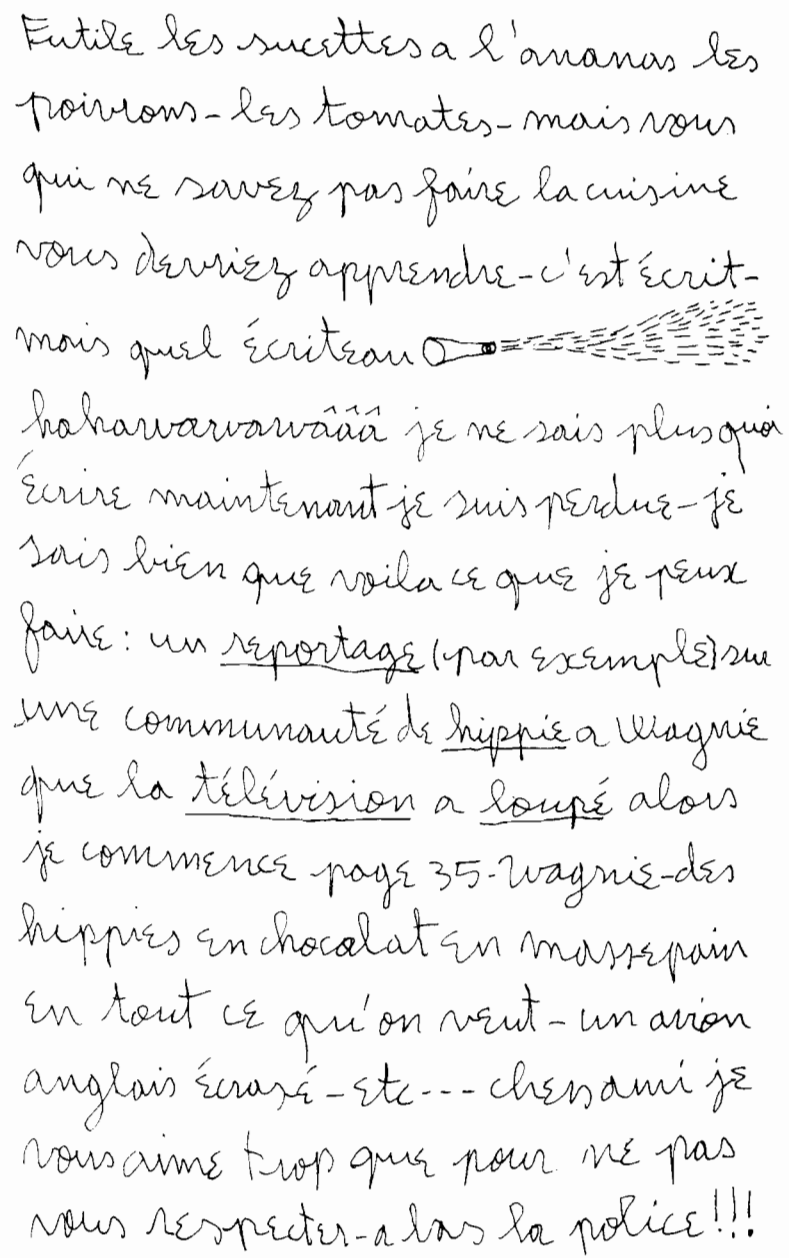 Futile les sucettes a l'ananas les
poivrons-les tomates-mais vous
qui ne savez pas faire la cuisine
vous devriez apprendre-c'est écrit-
mais quel écriteau
hahawawawâââ je ne sais plus quoi
écrire maintenant je suis perdue-je
sais bien que voila ce que je peux
faire: un reportage (par exemple) sur
une communauté de hippie a Wagnie
que la télévision a loupé alors
je commence page 35-Wagnie-des
hippies en chocolat en massepain
en tout ce qu'on veut-un avion
anglais écrasé-etc--- chers ami je
vous aime trop que pour ne pas
vous respecter-a bas la police!!!